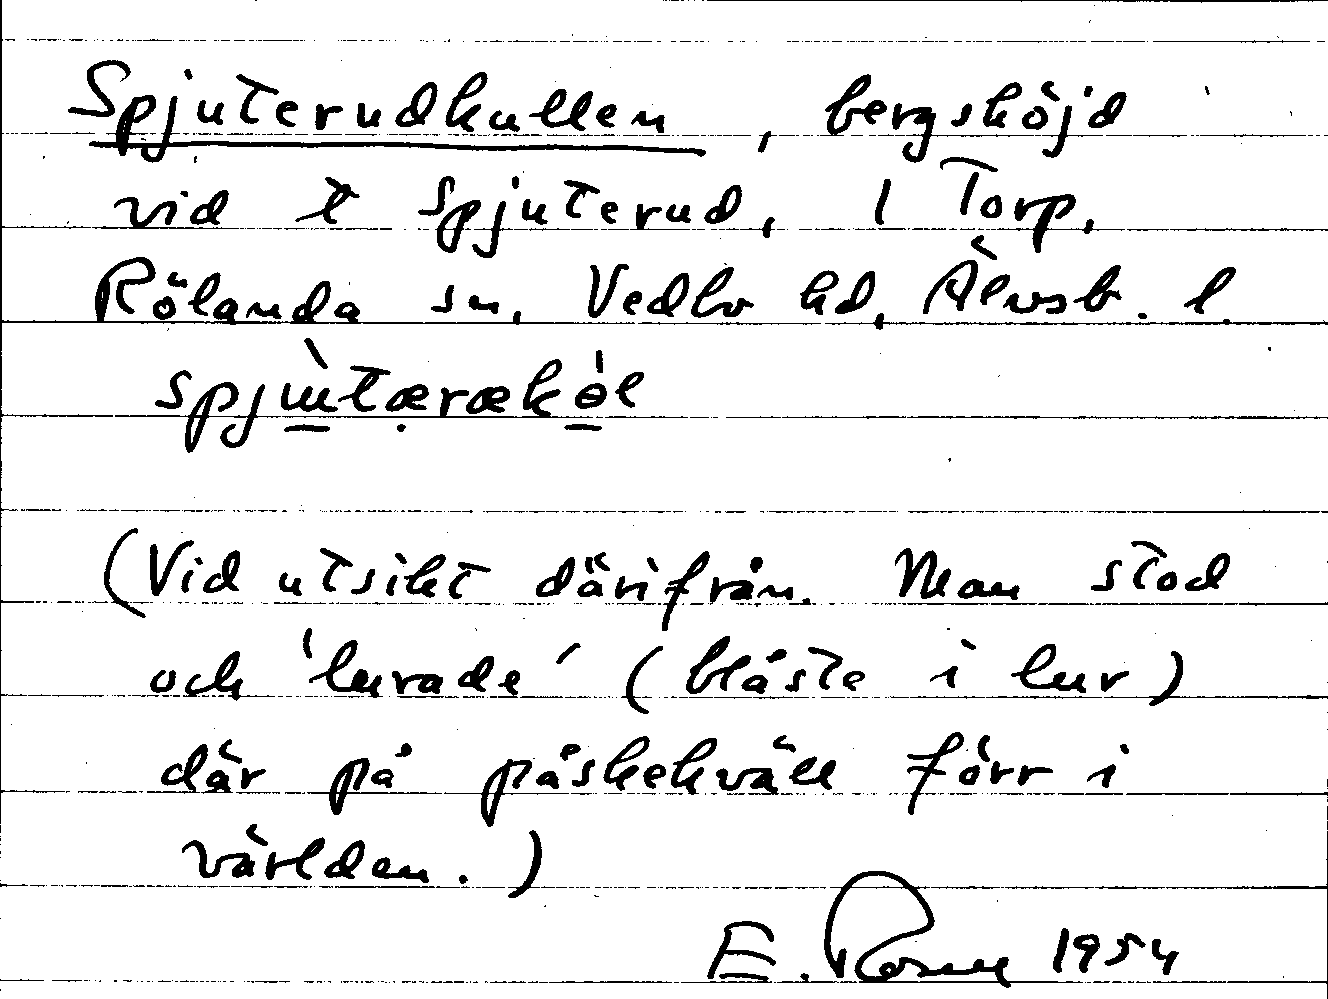 Spjuterudkullen, bergshöjd
vid t Spjuterud, 1 Torp,
Rölanda sn, Vedbo hd, Älvsb. l.
(Vid utsikt därifrån. Man stod
och 'lurade' (blåste i lur)
där på påskekväll förr i
världen.)
E. 1954